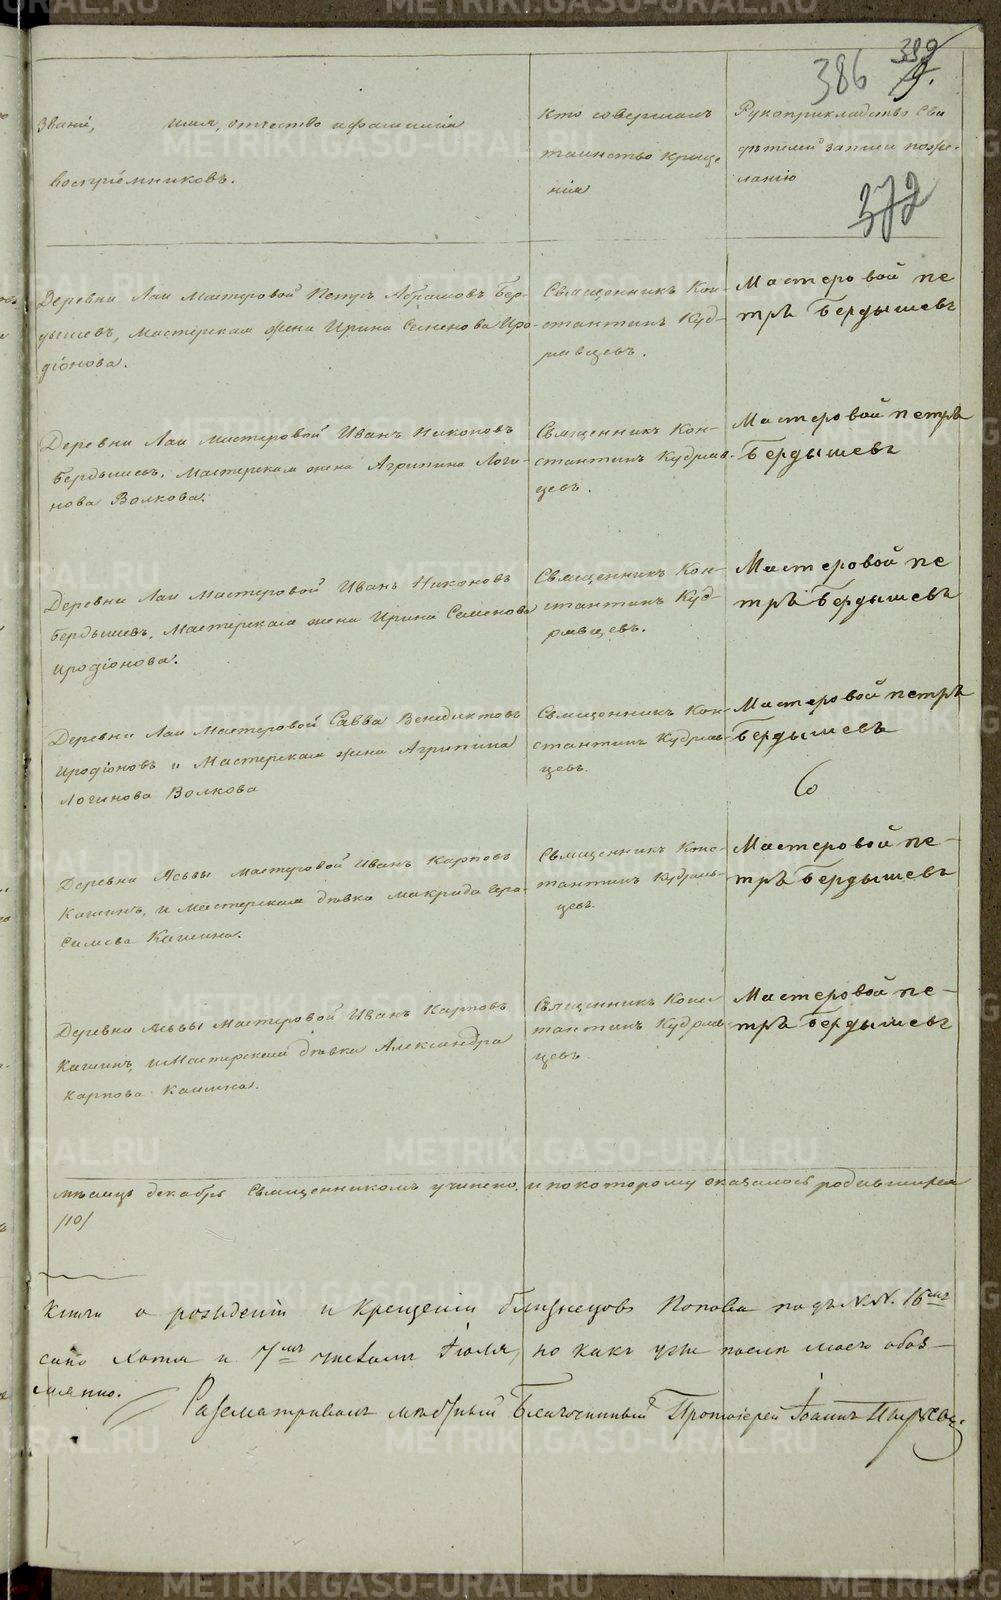 386 389
9.
Званіе, имя, отчество и фамилія
воспріемниковъ.
Кто совершалъ
таинство креще
нія
Рукоприкладство сви
дѣтелей записи по же-
ланію
372
Деревни Лаи Мастеровой Петръ Абрамовъ Бер-
дышевъ, Мастерская жена Ирина Семенова Иро-
діонова.
Священникъ Кон-
стантинъ Куд-
рявцевъ.
Мастеровой пе
тръ Бердышевъ
Деревни Лаи мастеровой Иванъ Никоновъ
Бердышевъ, Мастерская жена Агрипина Логи-
нова Волкова.
Священникъ Кон-
стантинъ Кудряв-
цевъ.
Мастеровой петръ
Бердышевъ
Деревни Лаи Мастеровой Иванъ Никоновъ
Бердышевъ, Мастерская жена Ирина Семенова
Иродіонова.
Священникъ Кон-
стантинъ Куд-
рявцевъ.
Мастеровой пе
тръ Бердышевъ
Деревни Лаи Мастеровой Савва Венедиктовъ
Иродіоновъ и Мастерская жена Агрипина
Логинова Волкова
Священникъ Кон
стантинъ Кудряв-
цевъ.
Мастеровой петръ
Бердышевъ
Деревни Асьвы мастеровой Иванъ Карповъ
Кашинъ, и Мастерская дѣвка Макрида Гера-
симова Кашина.
Священникъ Конс-
тантинъ Кудряв-
цевъ.
Мастеровой пе-
тръ Бердышевъ
Деревни Асьвы мастеровой Иванъ Карповъ
Кашинъ, и Мастерская дѣвка Александра
Карпова Кашина.
Священникъ Конс
тантинъ Кудряв-
цевъ.
Мастеровой пе-
тръ Бердышевъ
мѣсяцъ декабрь Священникомъ учинено, и по которому оказалось родившихся
/10/
книги о рожденіи и крещеніи близнецовъ Попова подъ №№. 16мъ
сано хотя и 7мъ числомъ Іюля, но какъ уже послѣ моего обоз-
Разсматривалъ мѣстный Благочинный Протоіерей Іоаннъ
METRIKI.GASO-URAL.RU